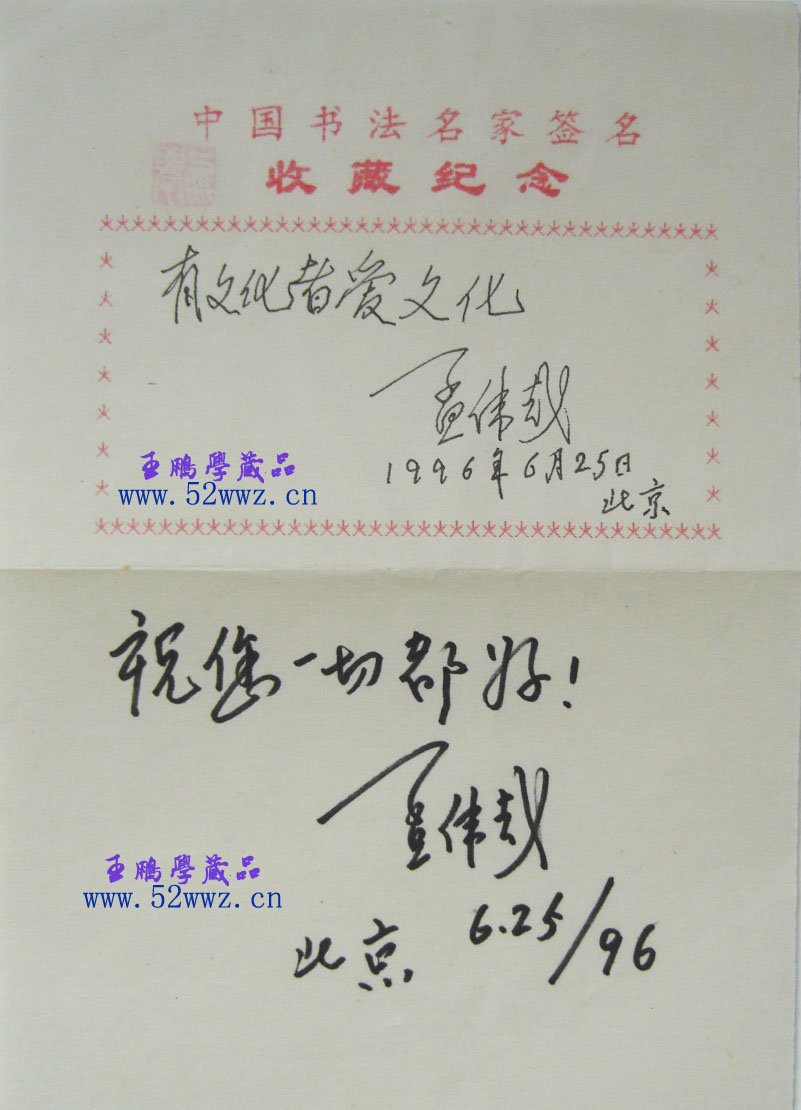 中国书法名家签名
收藏纪念
有文化者爱文化
孟伟哉
1996年6月25日
北京
王鹏學藏品
www.52wwz.cn
祝您一切都好！
孟伟哉
王鹏學藏品
www.52wwz.cn
北京 6.25/96